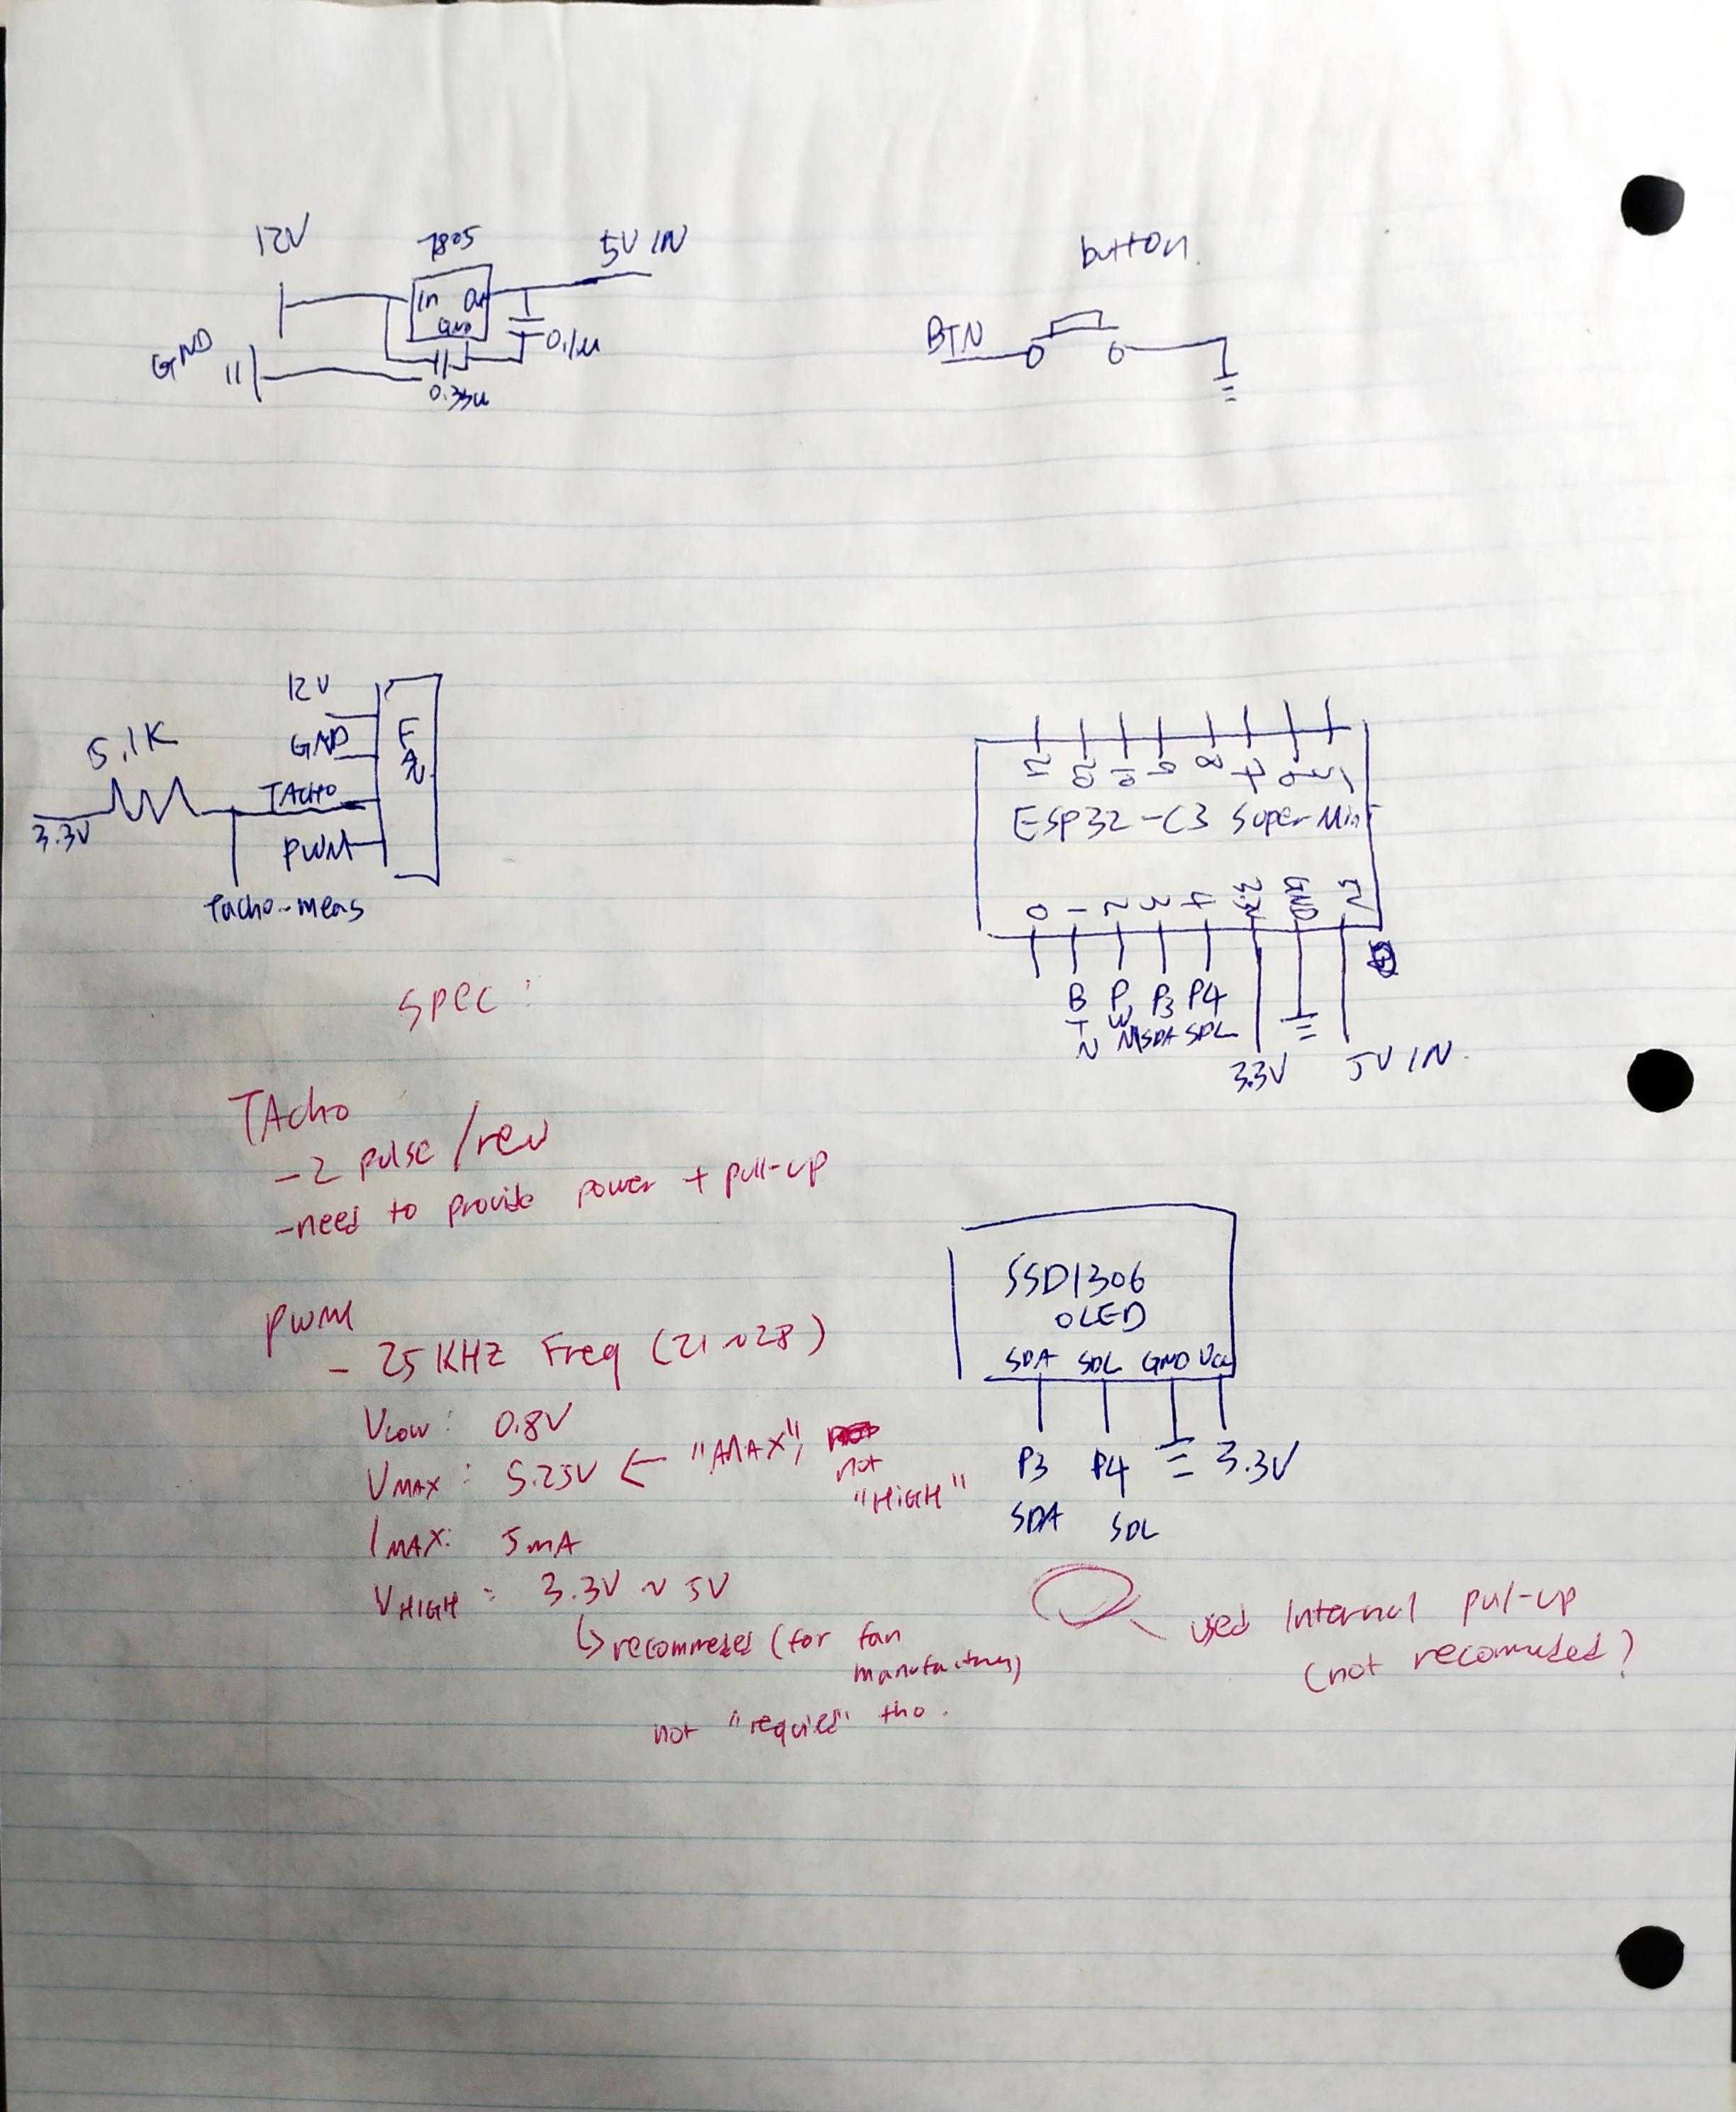 12V
7805
5V IN
In Out
GND
GND
0.1u
0.33u
button
BTN
12V
GND
TACHO
PWM
FAN
5.1K
3.3V
Tacho-meas
21 20 10 9 8 7 6 5
ESP32-C3 Super Mini
0 1 2 3 4 3.3V GND 5V
BTN PWM P3 SDA P4 SDL
3.3V
5V IN
spec:
TAcho
- 2 pulse/rev
- need to provide power + pull-up
PWM
- 25 KHZ Freq (21~28)
VLOW: 0.8V
VMAX: 5.25V ← "MAX", not "HIGH"
IMAX: 5mA
VHIGH: 3.3V ~ 5V
↳ recommeded (for fan
not "requied" tho.
SSD1306
OLED
SDA SDL GND Vcc
P3 P4 3.3V
SDA SDL
used Internal pul-up
(not recommeded?)